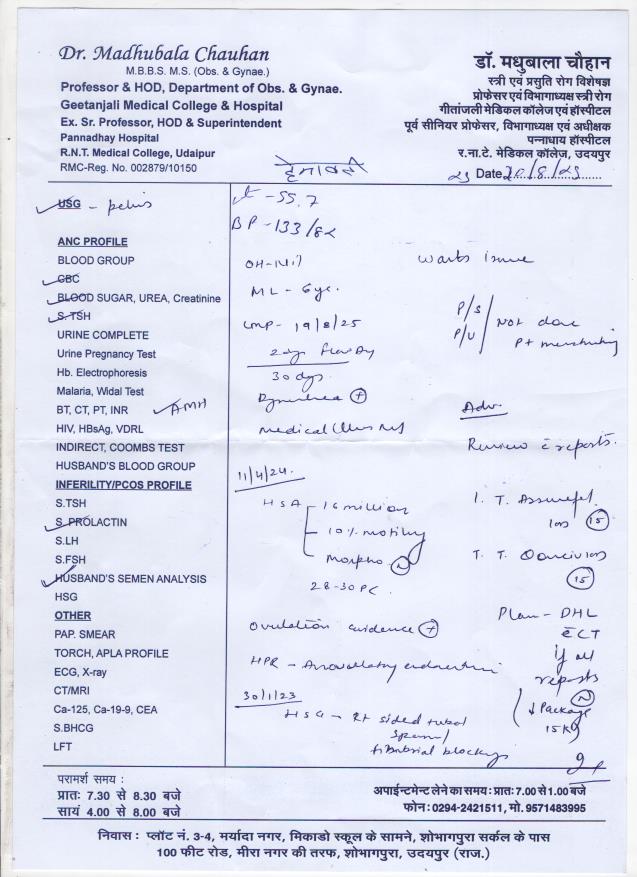 Dr. Madhubala Chauhan
M.B.B.S. M.S. (Obs. & Gynae.)
Professor & HOD, Department of Obs. & Gynae.
Geetanjali Medical College & Hospital
Ex. Sr. Professor, HOD & Superintendent
Pannadhay Hospital
R.N.T. Medical College, Udaipur
RMC-Reg. No. 002879/10150
डॉ. मधुबाला चौहान
स्त्री एवं प्रसुति रोग विशेषज्ञ
प्रोफेसर एवं विभागाध्यक्ष स्त्री रोग
गीतांजली मेडिकल कॉलेज एवं हॉस्पीटल
पूर्व सीनियर प्रोफेसर, विभागाध्यक्ष एवं अधीक्षक
पन्नाधाय हॉस्पीटल
र.ना.टे. मेडिकल कॉलेज, उदयपुर
Date
USG - pelvis
ANC PROFILE
BLOOD GROUP
CBC
BLOOD SUGAR, UREA, Creatinine
S.TSH
URINE COMPLETE
Urine Pregnancy Test
Hb. Electrophoresis
Malaria, Widal Test
BT, CT, PT, INR AMH
HIV, HBsAg, VDRL
INDIRECT, COOMBS TEST
HUSBAND'S BLOOD GROUP
INFERILITY/PCOS PROFILE
S.TSH
S. PROLACTIN
S.LH
S.FSH
HUSBAND'S SEMEN ANALYSIS
HSG
OTHER
PAP. SMEAR
TORCH, APLA PROFILE
ECG, X-ray
CT/MRI
Ca-125, Ca-19-9, CEA
S.BHCG
LFT
- 55.7
BP - 133/82
OH - Nil
ML - 6yr.
LMP - 19/8/25
30 days
+
11/4/24.
HSA - 16 million
- 10% motility
- Morpho N
28-30 PC
Ovulation evidence +
HPR -
30/1/23
HSG - Rt sided tubal
spasm/
fibrial blockage
wants issue
P/S
P/V
Not done
Pt menstruating
Adv.
Review c reports.
15
15
Plan - DHL
c CT
if all
reports
N
Package
15K
परामर्श समय :
प्रातः 7.30 से 8.30 बजे
सायं 4.00 से 8.00 बजे
अपाईन्टमेन्ट लेने का समय : प्रातः 7.00 से 1.00 बजे
फोन : 0294-2421511, मो. 9571483995
निवास : प्लॉट नं. 3-4, मर्यादा नगर, मिकाडो स्कूल के सामने, शोभागपुरा सर्कल के पास
100 फीट रोड, मीरा नगर की तरफ, शोभागपुरा, उदयपुर (राज.)